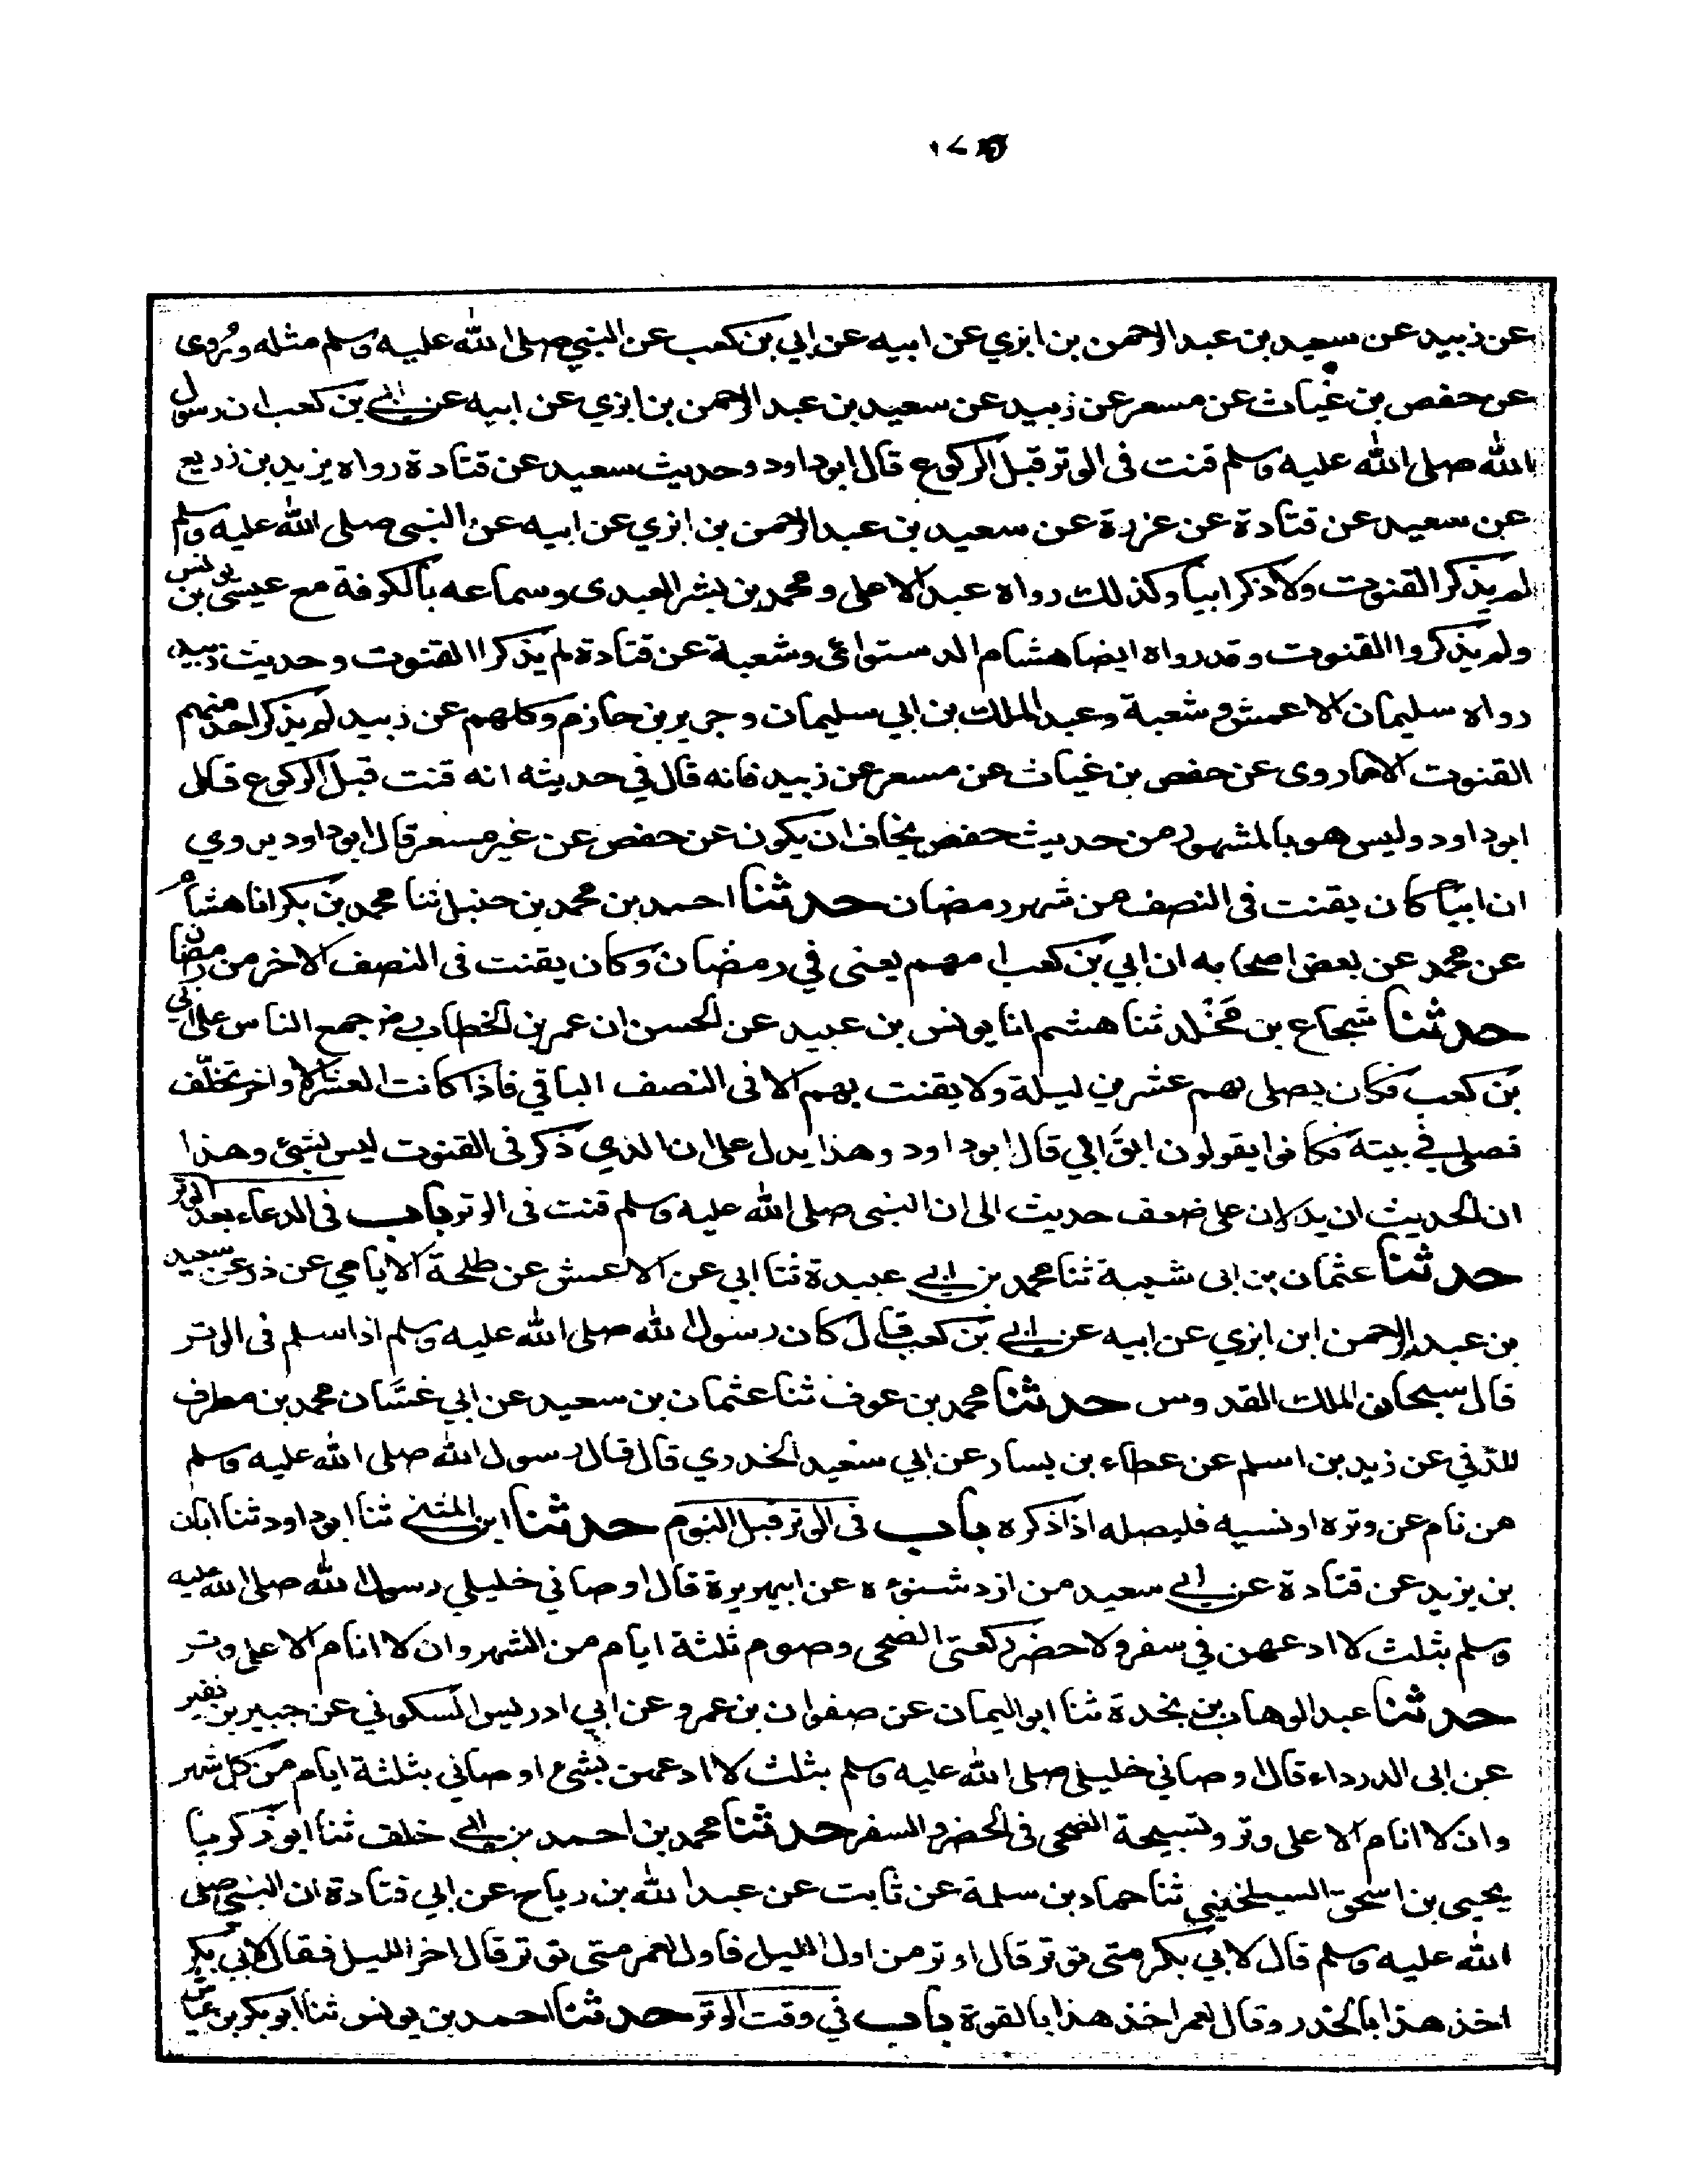 عن زبيد عن سعيد بن عبد الرحمن بن ابزي عن ابيه عن ابي بن كعب عن النبي صلى الله عليه وسلم مثله وروى
عن حفص بن غياث عن مسعر عن زبيد عن سعيد بن عبد الرحمن بن ابزي عن ابيه عن ابي بن كعب ان رسول
الله صلى الله عليه وسلم قنت فى الوتر قبل الركوع قال ابو داود وحديث سعيد عن قتادة رواه يزيد بن زريع
عن سعيد عن قتادة عن عزرة عن سعيد بن عبد الرحمن بن ابزي عن ابيه عن النبى صلى الله عليه وسلم
لم يذكر القنوت ولا ذكر ابيا وكذلك رواه عبد الاعلى ومحمد بن بشر العبدى وسماعه بالكوفة مع عيسى بن يونس
ولم يذكروا القنوت وقد رواه ايضا هشام الدستوائى وشعبة عن قتادة لم يذكرا القنوت وحديث زبيد
رواه سليمان الاعمش وشعبة وعبد الملك بن ابي سليمان وجرير بن حازم وكلهم عن زبيد لم يذكر احد منهم
القنوت الا ما روى عن حفص بن غياث عن مسعر عن زبيد فانه قال في حديثه انه قنت قبل الركوع قال
ابو داود وليس هو بالمشهور من حديث حفص يخاف ان يكون عن حفص عن غير مسعر قال ابو داود يروي
ان ابيا كان يقنت فى النصف من شهر رمضان حدثنا احمد بن محمد بن حنبل ثنا محمد بن بكر انا هشام
عن محمد عن بعض اصحابه ان ابي بن كعب امهم يعنى في رمضان وكان يقنت فى النصف الاخر من رمضان
حدثنا شجاع بن مخلد ثنا هشم انا يونس بن عبيد عن الحسن ان عمر بن الخطاب رض جمع الناس على ابي
بن كعب فكان يصلى بهم عشرين ليلة ولا يقنت بهم الا فى النصف الباقي فاذا كانت العشر الاواخر تخلف
فصلى في بيته فكانوا يقولون ابق ابي قال ابو داود وهذا يدل على ان الذي ذكر فى القنوت ليس بشئ وهذا
ان الحديث ان يدلان على ضعف حديث ابى ان النبى صلى الله عليه وسلم قنت فى الوتر باب فى الدعاء بعد الوتر
حدثنا عثمان بن ابى شيبة ثنا محمد بن ابي عبيدة ثنا ابي عن الاعمش عن طلحة الايامي عن ذر عن سعيد
بن عبد الرحمن ابن ابزي عن ابيه عن ابي بن كعب قال كان رسول الله صلى الله عليه وسلم اذا سلم فى الوتر
قال سبحان الملك القدوس حدثنا محمد بن عوف ثنا عثمان بن سعيد عن ابي غسان محمد بن مطرف
المدني عن زيد بن اسلم عن عطاء بن يسار عن ابي سعيد الخدري قال قال رسول الله صلى الله عليه وسلم
من نام عن وتره او نسيه فليصله اذا ذكره باب فى الوتر قبل النوم حدثنا ابن المثنى ثنا ابو داود ثنا ابان
بن يزيد عن قتادة عن ابي سعيد من ازد شنوءه عن ابيهريرة قال اوصاني خليلي رسول الله صلى الله عليه
وسلم بثلث لا ادعهن في سفر ولا حضر ركعتى الضحى وصوم ثلثة ايام من الشهر وان لا انام الا على وتر
حدثنا عبد الوهاب بن نجدة ثنا ابو اليمان عن صفوان بن عمرو عن ابي ادريس السكوني عن جبير بن نفير
عن ابى الدرداء قال اوصاني خليلي صلى الله عليه وسلم بثلث لا ادعهن بشئ اوصاني بثلثة ايام من كل شهر
وان لا انام الا على وتر وتسبيحة الضحى فى الحضر والسفر حدثنا محمد بن احمد بن ابي خلف ثنا ابو زكريا
يحيى بن اسحق السيلحيني ثنا حماد بن سلمة عن ثابت عن عبد الله بن رباح عن ابي قتادة ان النبى صلى
الله عليه وسلم قال لابي بكر متى توتر قال اوتر من اول الليل فاول لعمر متى توتر قال اخر الليل فقال لابي بكر
اخذ هذا بالحذر وقال لعمر اخذ هذا بالقوة باب في وقت الوتر حدثنا احمد بن يونس ثنا ابو بكر بن عياش